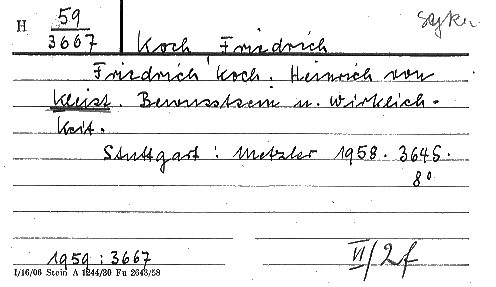 H 59/3667
Koch Friedrich
Friedrich Koch. Heinrich von
Kleist. Bewusstsein u. Wirklich-
keit.
Stuttgart: Metzler 1958. 364 S.
8°
1959:3667 VI/2f
I/16/06 Stein A 1244/30 Fu 2643/58